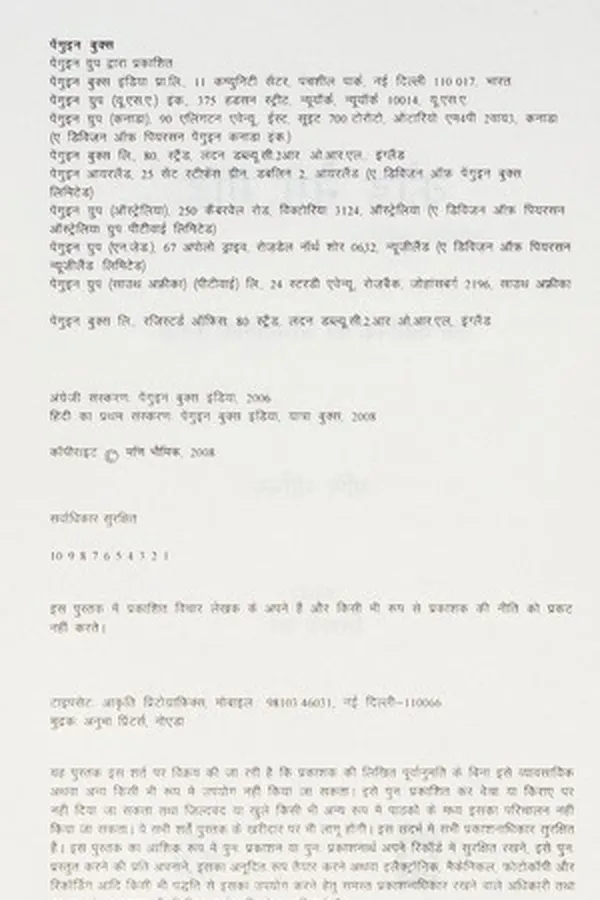 पेंगुइन बुक्स
पेंगुइन ग्रुप द्वारा प्रकाशित
पेंगुइन बुक्स इंडिया प्रा.लि., 11 कम्युनिटी सेंटर, पंचशील पार्क, नई दिल्ली 110 017, भारत
पेंगुइन ग्रुप (यू.एस.ए.) इंक., 375 हडसन स्ट्रीट, न्यूयॉर्क, न्यूयॉर्क 10014, यू.एस.ए.
पेंगुइन ग्रुप (कनाडा), 90 एग्लिंटन एवेन्यू, ईस्ट, सूइट 700 टोरोंटो, ओंटारियो एम4पी 2वाय3, कनाडा
(ए डिविज़न ऑफ़ पियरसन पेंगुइन कनाडा इंक.)
पेंगुइन बुक्स लि., 80, स्ट्रैंड, लंदन डब्ल्यू.सी.2आर ओ.आर.एल., इंग्लैंड
पेंगुइन आयरलैंड, 25 सेंट स्टीफ़ेंस ग्रीन, डबलिन 2, आयरलैंड (ए डिविज़न ऑफ़ पेंगुइन बुक्स
लिमिटेड)
पेंगुइन ग्रुप (ऑस्ट्रेलिया), 250 कैंबरवेल रोड, विक्टोरिया 3124, ऑस्ट्रेलिया (ए डिविज़न ऑफ़ पियरसन
ऑस्ट्रेलिया ग्रुप पीटीवाई लिमिटेड)
पेंगुइन ग्रुप (एन.ज़ेड.), 67 अपोलो ड्राइव, रोज़डेल नॉर्थ शोर 0632, न्यूज़ीलैंड (ए डिविज़न ऑफ़ पियरसन
न्यूज़ीलैंड लिमिटेड)
पेंगुइन ग्रुप (साउथ अफ़्रीका) (पीटीवाई) लि., 24 स्टरडी एवेन्यू, रोज़बैंक, जोहांसबर्ग 2196, साउथ अफ़्रीका
पेंगुइन बुक्स लि., रजिस्टर्ड ऑफ़िस: 80 स्ट्रैंड, लंदन डब्ल्यू.सी.2.आर ओ.आर.एल., इंग्लैंड
अंग्रेज़ी संस्करण: पेंगुइन बुक्स इंडिया, 2006
हिंदी का प्रथम संस्करण: पेंगुइन बुक्स इंडिया, यात्रा बुक्स, 2008
कॉपीराइट © मणि भौमिक, 2008
सर्वाधिकार सुरक्षित
10 9 8 7 6 5 4 3 2 1
इस पुस्तक में प्रकाशित विचार लेखक के अपने हैं और किसी भी रूप से प्रकाशक की नीति को प्रकट
नहीं करते।
टाइपसेट: आकृति प्रिंटोग्राफ़िक्स, मोबाइल : 98103 46031, नई दिल्ली–110066
मुद्रक: अनुभा प्रिंटर्स, नोएडा
यह पुस्तक इस शर्त पर विक्रय की जा रही है कि प्रकाशक की लिखित पूर्वानुमति के बिना इसे व्यावसायिक
अथवा अन्य किसी भी रूप में उपयोग नहीं किया जा सकता। इसे पुनः प्रकाशित कर बेचा या किराए पर
नहीं दिया जा सकता तथा जिल्दबंद या खुले किसी भी अन्य रूप में पाठकों के मध्य इसका परिचालन नहीं
किया जा सकता। ये सभी शर्तें पुस्तक के खरीदार पर भी लागू होंगी। इस संदर्भ में सभी प्रकाशनाधिकार सुरक्षित
हैं। इस पुस्तक का आंशिक रूप में पुनः प्रकाशन या पुनः प्रकाशनार्थ अपने रिकॉर्ड में सुरक्षित रखने, इसे पुनः
प्रस्तुत करने की प्रति अपनाने, इसका अनूदित रूप तैयार करने अथवा इलैक्ट्रॉनिक, मैकेनिकल, फ़ोटोकॉपी और
रिकॉर्डिंग आदि किसी भी पद्धति से इसका उपयोग करने हेतु समस्त प्रकाशनाधिकार रखने वाले अधिकारी तथा